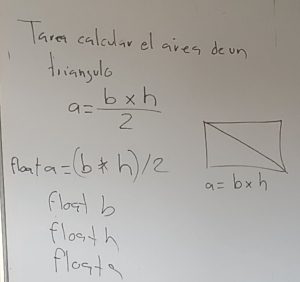 Tarea calcular el área de un
triangulo
a = b x h / 2
float a = (b * h) / 2
a = b x h
float b
float h
float a